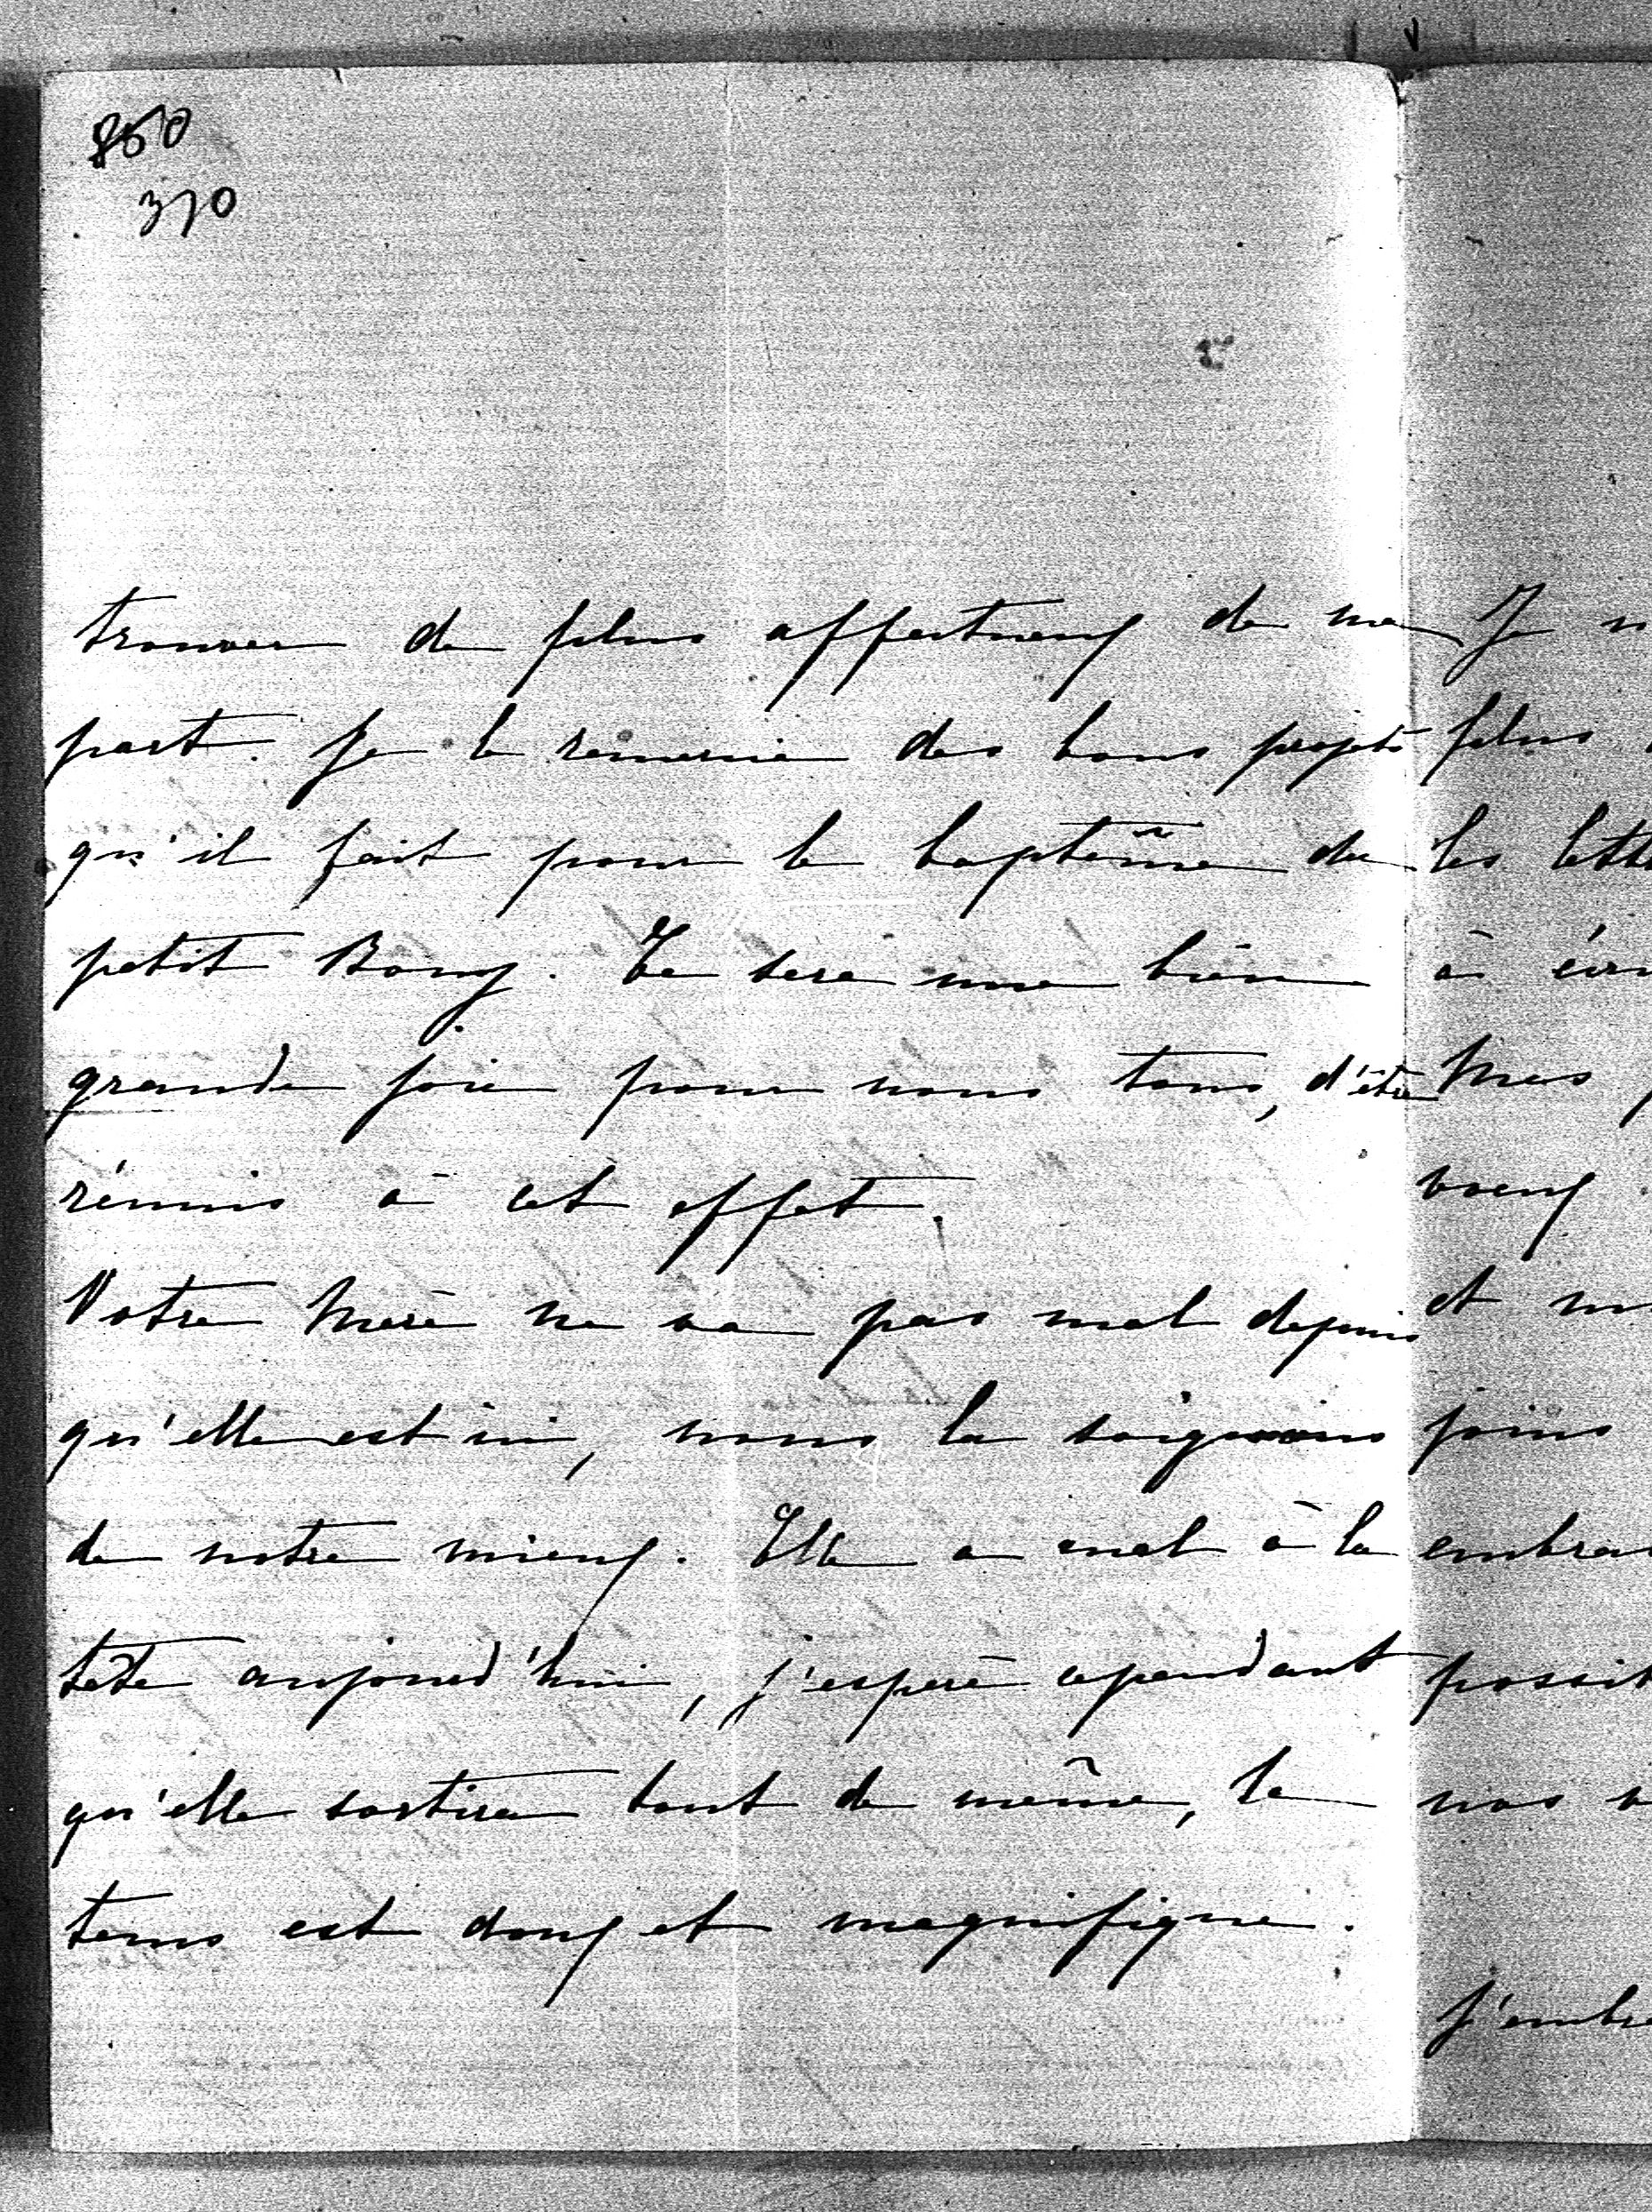 850
370
trouver de plus affectueux de ma
part. Je le remercie des bons projets
qu'il fait pour le baptême du
petit Bouy. Ce sera une bien
grande joie pour nous tous, d'être
réunis à cet effet.
Votre Mère ne va pas mal depuis
qu'elle est ici, nous la soignons
de notre mieux. Elle a mal à la
tête aujourd'hui, j'espère cependant
qu'elle sortira tout de même, le
tems est doux et magnifique.
Je
plus
les lett
à écri
Mes
voeux
et
joins
embras
possib
nos
J'embr